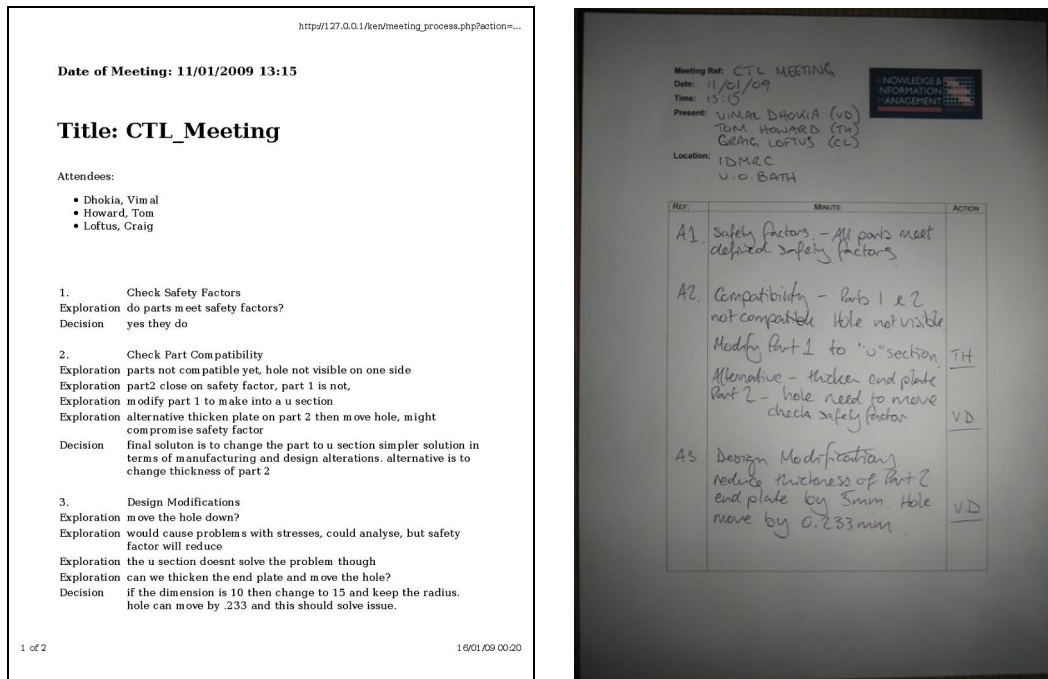 http://127.0.0.1/ken/meeting_process.php?action=...
Date of Meeting: 11/01/2009 13:15
Title: CTL_Meeting
Attendees:
• Dhokia, Vimal
• Howard, Tom
• Loftus, Craig
1. Check Safety Factors
Exploration do parts meet safety factors?
Decision yes they do
2. Check Part Compatibility
Exploration parts not compatible yet, hole not visible on one side
Exploration part2 close on safety factor, part 1 is not,
Exploration modify part 1 to make into a u section
Exploration alternative thicken plate on part 2 then move hole, might
compromise safety factor
Decision final soluton is to change the part to u section simpler solution in
terms of manufacturing and design alterations. alternative is to
change thickness of part 2
3. Design Modifications
Exploration move the hole down?
Exploration would cause problems with stresses, could analyse, but safety
factor will reduce
Exploration the u section doesnt solve the problem though
Exploration can we thicken the end plate and move the hole?
Decision if the dimension is 10 then change to 15 and keep the radius.
hole can move by .233 and this should solve issue.
1 of 2
16/01/09 00:20
Meeting Ref: CTL MEETING
Date: 11/01/09
Time: 15:15
Present: VIMAL DHOKIA (VD)
TOM HOWARD (TH)
CRAIG LOFTUS (CL)
Location: IDMRC
U.O. BATH
KNOWLEDGE &
INFORMATION
MANAGEMENT
REF: MINUTE ACTION
A1. Safety Factors. - All parts meet
defined safety factors
A2. Compatibility - Parts 1 & 2
not compatible. Hole not visible
Modify Part 1 to "u" section. TH
Alternative - thicken end plate
Part 2 - hole need to move
check safety factor VD
A3. Design Modifications
reduce thickness of Part 2
end plate by 5mm. Hole
move by 0.233mm. VD